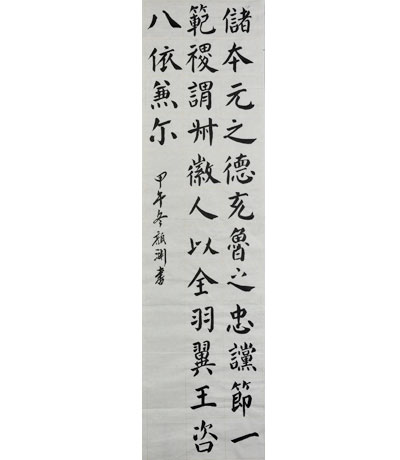 儲本元之德充魯之忠讜節一
範稷謂州徽人以全羽翼王咨
八依兼尔
甲午冬颜渊書